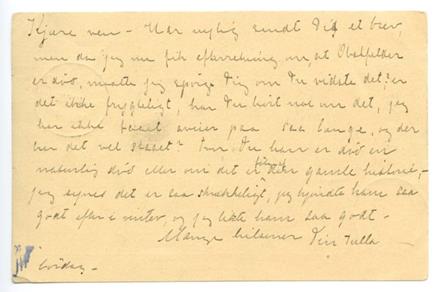 Kjære ven - Har nylig sendt Dig et brev,
men da jeg nu fik efterretning om at Obstfelder
er død, maatte jeg spørge Dig om Du vidste det? er
det ikke frygteligt, har Du hørt noe om det, jeg
har ikke faaet aviser paa saa lange, og der
har det vel staaet? Tror Du han er død en
naturlig død eller om det er den gamle historie, -
jeg synes det er saa skrækkeligt, jeg kjendte ham saa
godt efter i vinter, og jeg likte ham saa godt -
Mange hilsener Din Tulla
Lørdag -